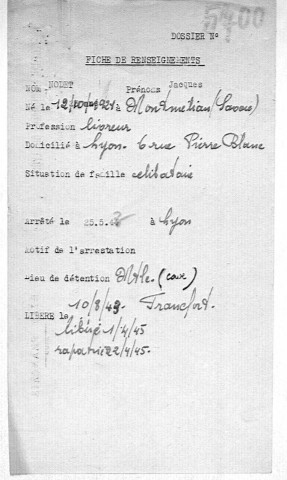 5700
DOSSIER N°
FICHE DE RENSEIGNEMENTS
NOM NOLET Prénoms Jacques
Né le 12/10/1921 à Montmélian (Savoie)
Profession livreur
Domicilié à Lyon. 6 rue Pierre Blanc
Situation de famille célibataire
Arrêté le 25.5. à Lyon
Motif de l'arrestation
Lieu de détention Mtluc (cave)
10/8/43. Francfort.
LIBERE le
libéré 1/4/45
rapatrié 22/4/45.